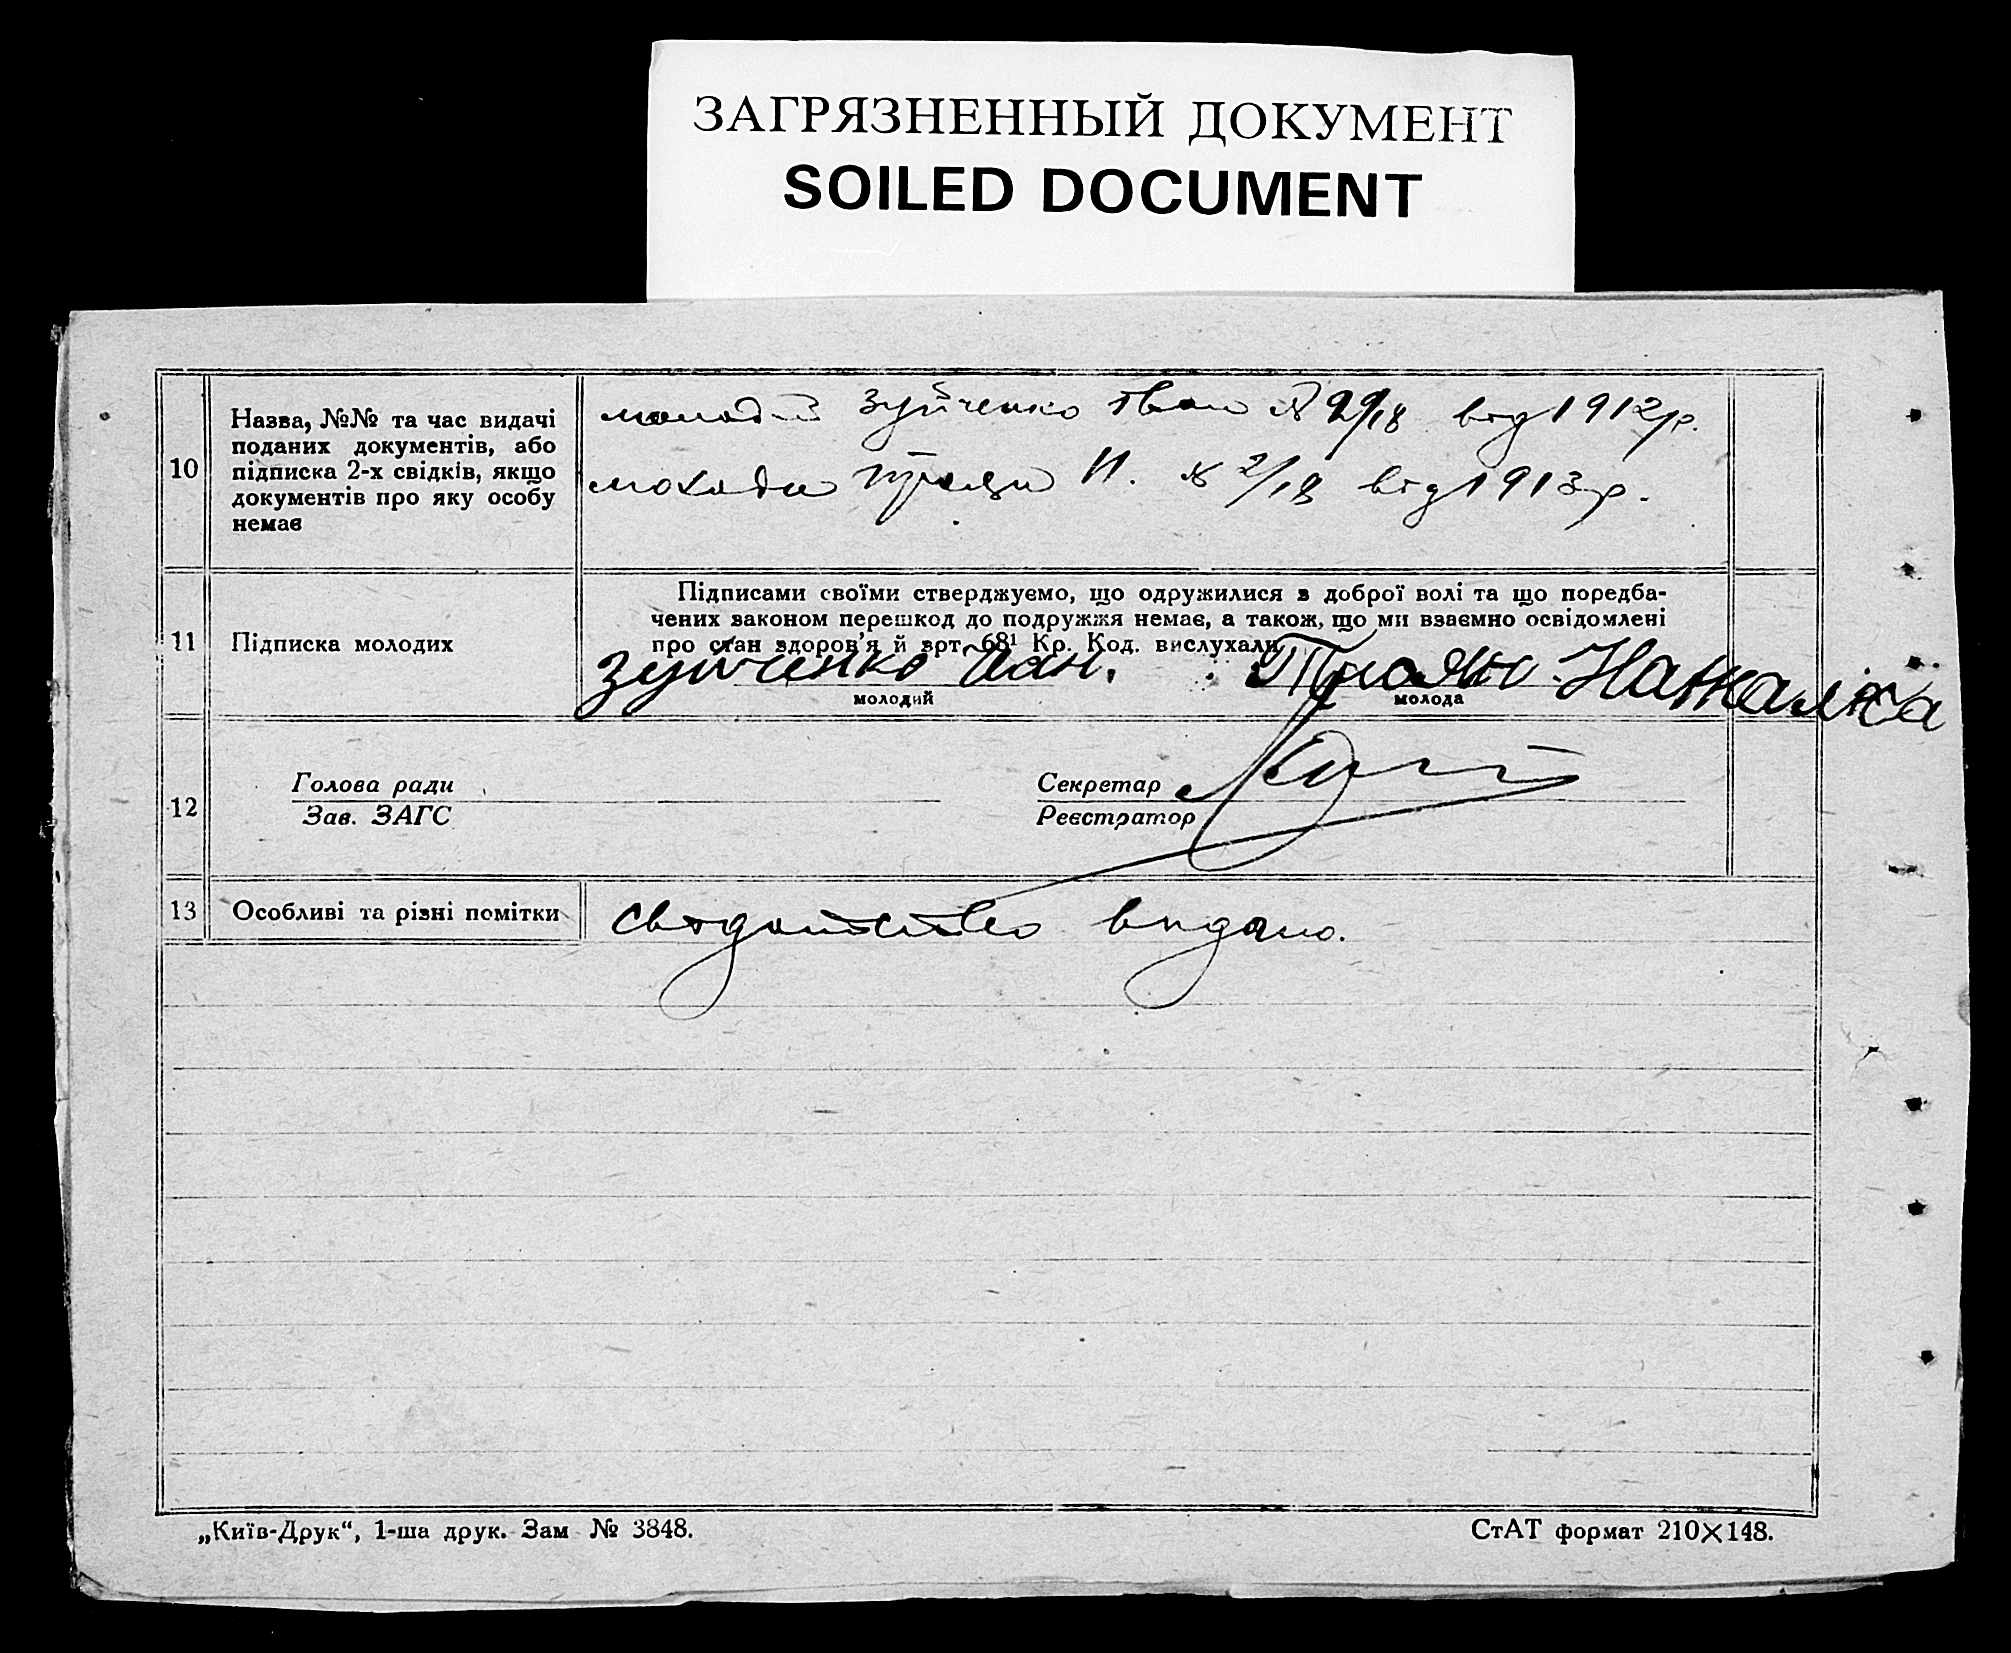 ЗАГРЯЗНЕННЫЙ ДОКУМЕНТ
SOILED DOCUMENT
10
Назва, №№ та час видачі
поданих документів, або
підписка 2-х свідків, якщо
документів про яку особу
немає
молодий Зуйченко Іван № 29/18 від 1912р.
молода Троян Н. № 2/18 від 1913р.
11
Підписка молодих
Підписами своїми стверджуємо, що одружилися з доброї волі та що поредба-
чених законом перешкод до подружжя немає, а також, що ми взаємно освідомлені
про стан здоров’я й арт. 68¹ Кр. Код. вислухали
Зуйченко Іван. Троян Наталка
молодий молода
12
Голова ради
Зав. ЗАГС
Секретар
Реєстратор
13
Особливі та різні помітки
Свідоцтво видано.
„Київ-Друк“, 1-ша друк. Зам № 3848.
СтАТ формат 210×148.